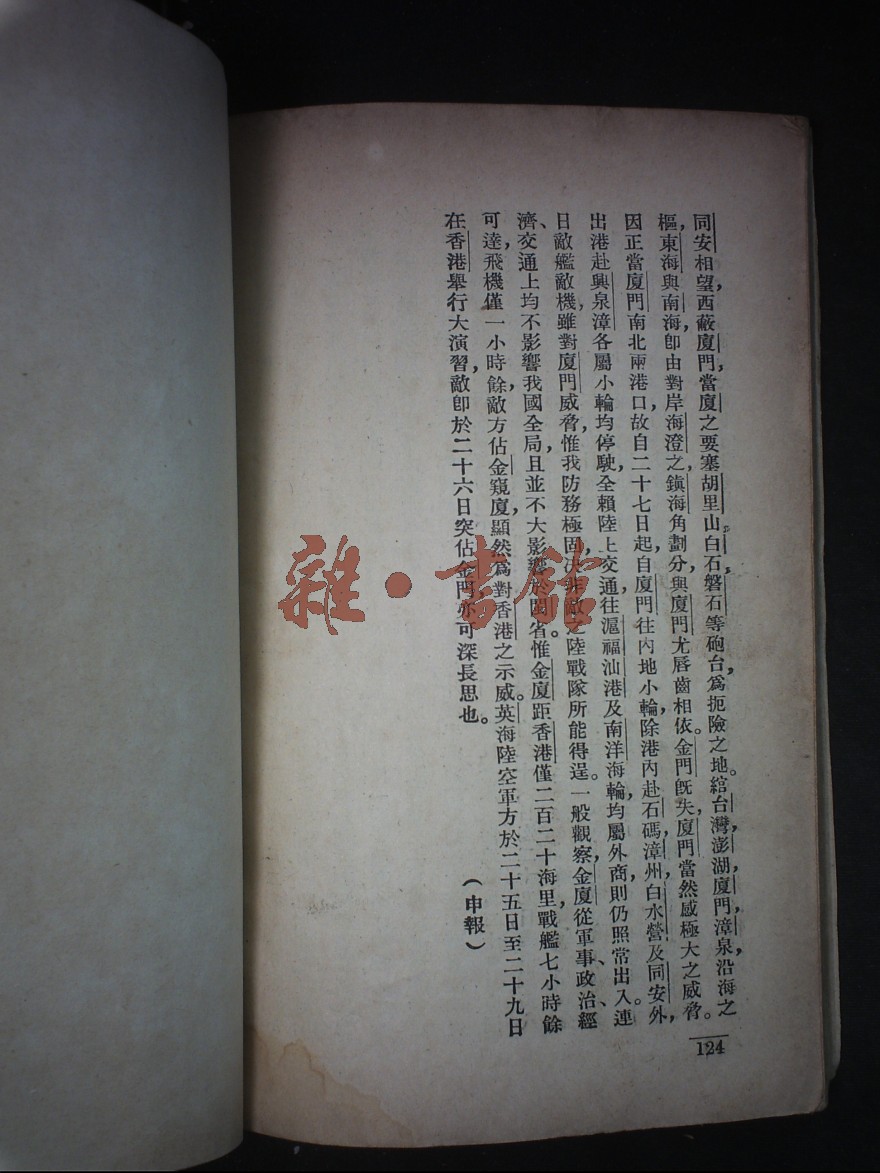 同安相望，西蔽廈門，當廈之要塞胡里山，白石，磐石等砲台，爲扼險之地。綰台灣，澎湖，廈門，漳，泉，沿海之
樞，東海與南海，卽由對岸海澄之鎭海角劃分，與廈門尤唇齒相依。金門旣失，廈門當然感極大之威脅。
因正當廈門南北兩港口，故自二十七日起，自廈門往內地小輪，除港內赴石碼，漳州，白水營及同安外，
出港赴興泉漳各屬小輪均停駛，全賴陸上交通，往滬福汕港及南洋海輪，均屬外商，則仍照常出入。連
日敵艦敵機，雖對廈門威脅，惟我防務極固，決非敵之陸戰隊所能得逞。一般觀察，金廈從軍事、政治、經
濟、交通上均不影響我國全局，且並不大影響於閩省。惟金廈距香港僅二百二十海里，戰艦七小時餘
可達，飛機僅一小時餘，敵方佔金窺廈，顯然爲對香港之示威。英海陸空軍方於二十五日至二十九日
在香港舉行大演習，敵卽於二十六日突佔金門，亦可深長思也。
（申報）
124
雜·書館